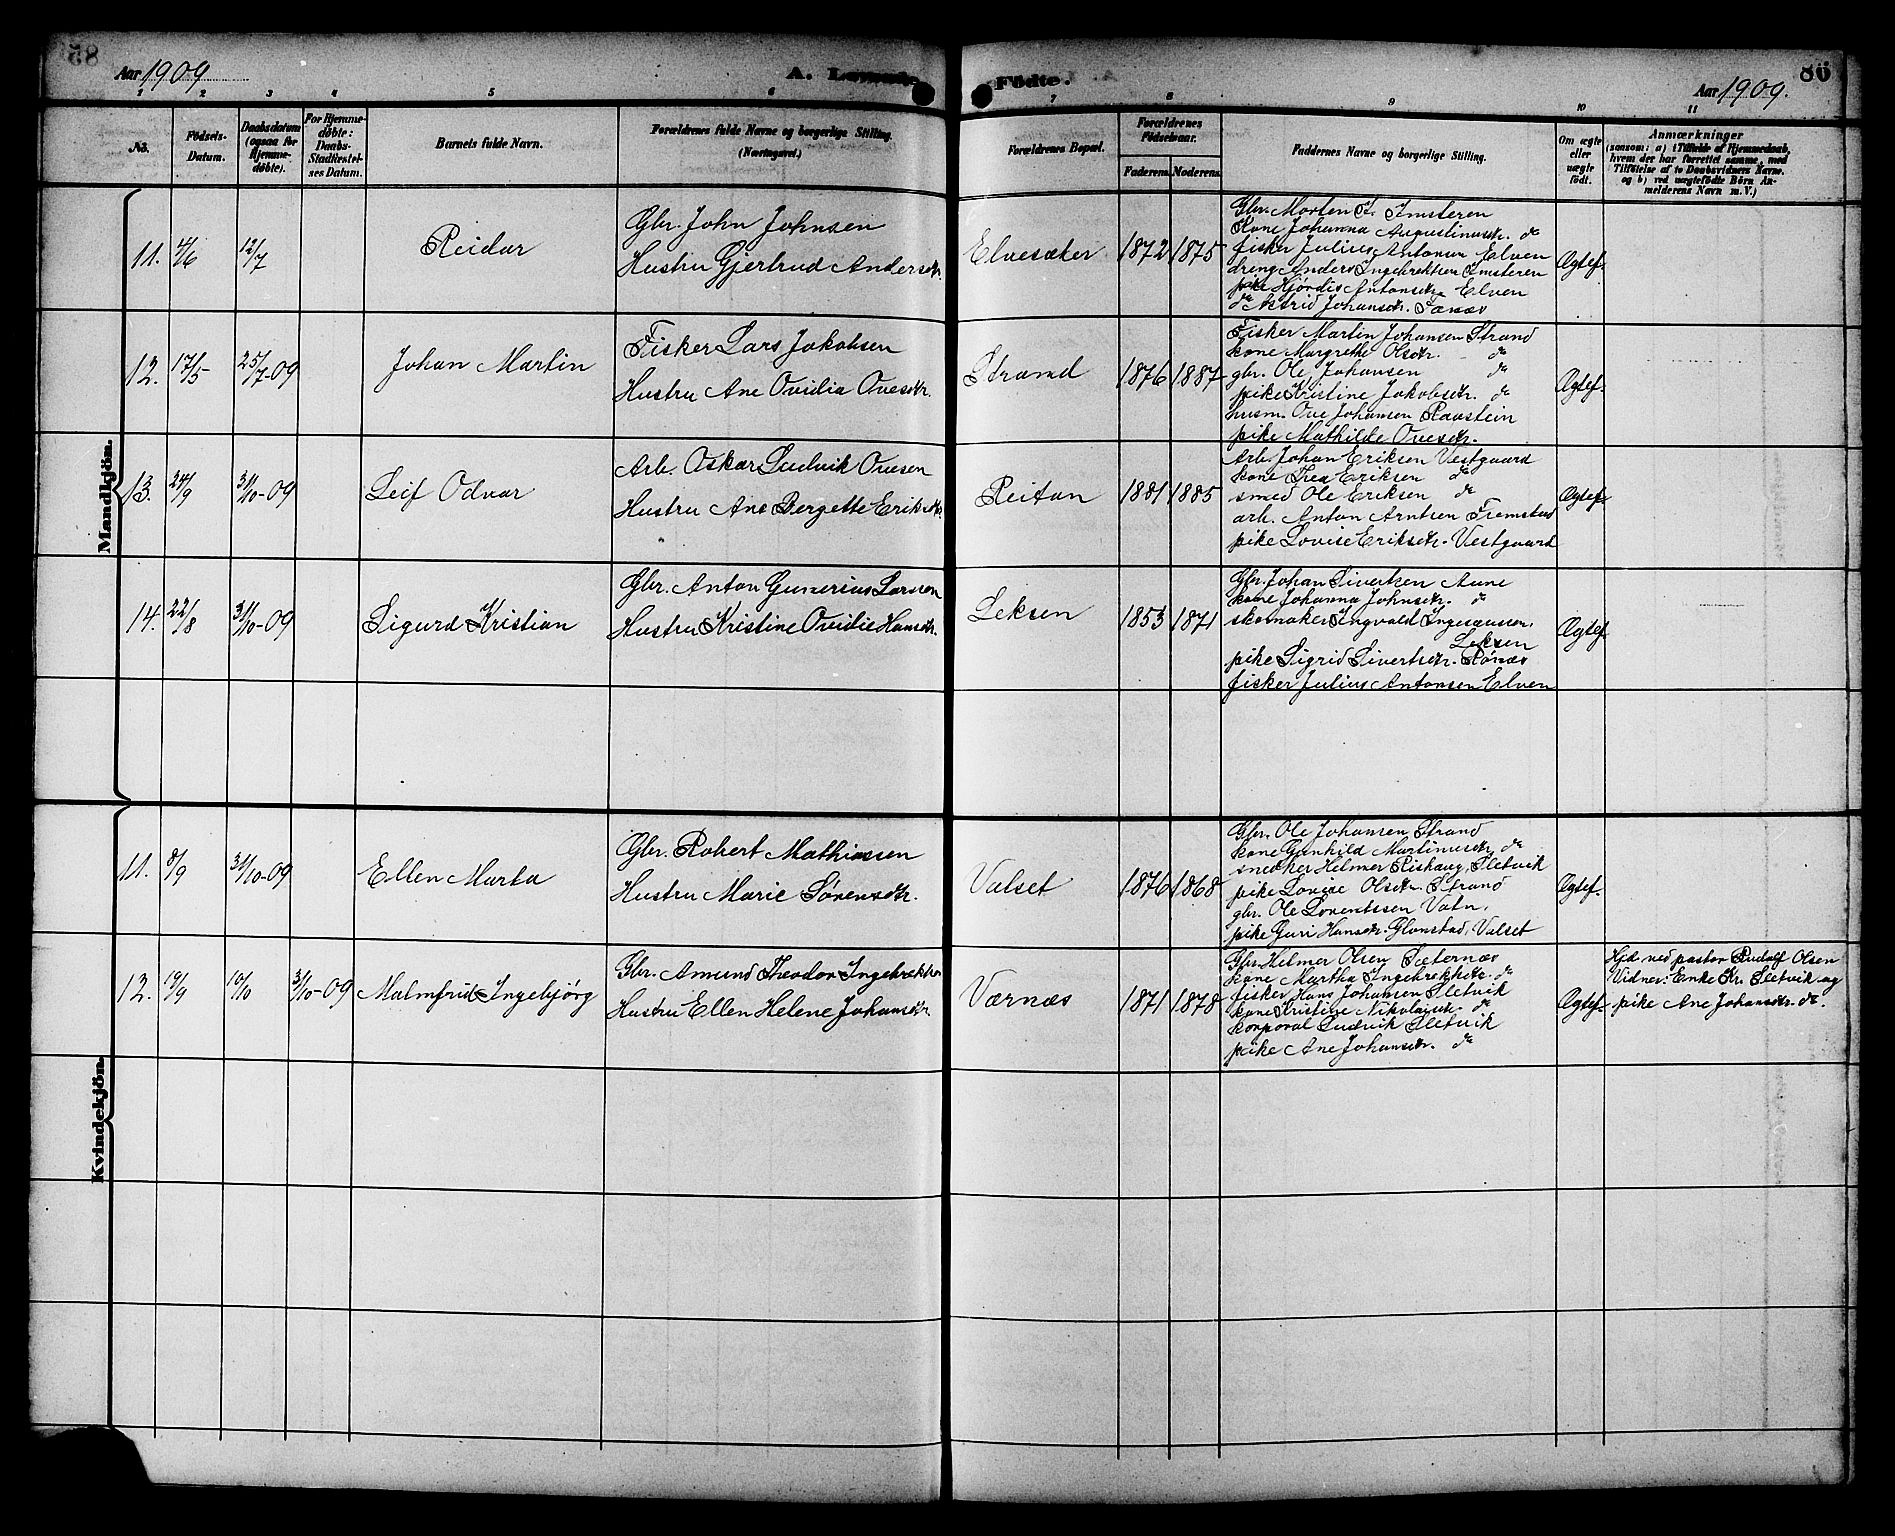 Aar 1909 A. Levende Födte. Aar 1909. 86
1 2 3 4 5 6 7 8 9 10 11
No. Födsels-Datum. Daabsdatum (ogsaa for Hjemme-døbte). For Hjemme-døbte: Daabs-Stadfæstel-ses Datum. Barnets fulde Navn. Forældrenes fulde Navne og borgerlige Stilling. (Næringsvei.) Forældrenes Bopæl. Forældrenes Födselsaar. Faderens. Moderens. Faddernes Navne og borgerlige Stilling. Om ægte eller uægte født. Anmærkninger (saasom: a) i Tilfælde af Hjemmedaab, hvem der har forrettet samme, med Tilföielse af to Daabsvidners Navne, og b) ved uægtefödte Börn Anmelderens Navn m. V.)
Mandkjön.
11. 4/6 12/7 Reidar
Gbr. John Johnsen
Hustru Gjertrud Andersdtr.
Elvesæter 1872 1875
Gbr. Morten I. Imsteren
Kone Johanna Augustinusdtr. do
fisker Julius Antonsen Elven
dreng Anders Ingebrektsen Imsteren
pike Hjördis Antonsdtr. Elven
do Astrid Johansdtr.
Ægtef.
12. 17/5 25/7-09 Johan Martin
Fisker Lars Jakobsen
Hustru Ane Ovidia Ovesdtr.
Strand 1876 1887
Fisker Martin Johansen Strand
kone Margrethe Olsdtr. do
gbr. Ole Johansen do
pike Kristine Jakobsdtr. do
husm. Ove Johansen Ravstein
pike Mathilde Ovesdtr.
Ægtef.
13. 24/9 31/10-09 Leif Odvar
Arb. Oskar Ludvik Ovesen
Hustru Ane Bergette Eriksdtr.
Reitan 1881 1885
Arb. Johan Eriksen Vestgaard
kone Thea Eriksen do
smed Ole Eriksen do
arb. Anton Arntsen Fremstad
pike Lovise Eriksdtr. Vestgaard
Ægtef.
14. 22/8 31/10-09 Sigurd Kristian
Gbr. Anton Gunerius Larsen
Hustru Kristine Ovidie Hansdtr.
Leksen 1853 1871
Gbr. Johan Sivertsen Aune
kone Johanna Johnsdtr. do
skomaker Ingvald Leksen
pike Sigrid Sivertsdtr. Rönæs
fisker Julius Antonsen Elven
Ægtef.
Kvindekjön.
11. 8/9 31/10-09 Ellen Marta
Gbr. Robert Mathiassen
Hustru Marie Sörensdtr.
Valset 1876 1868
Gbr. Ole Johansen Strand
kone Gunhild Martinusdtr. do
snedker Helmer Riskaug, Sletvik
pike Lovise Olsdtr. Strand
gbr. Ole Lorentssen Vatn.
pike Guri Hansdtr. Glonstad, Valset
Ægtef.
12. 19/9 10/10 31/10-09 Malmfrid Ingebjörg
Gbr. Amund Theodor Ingebrektsen
Hustru Ellen Helene Johansdtr
Værnæs 1871 1878
Gbr. Helmer Olsen Sæternæs
kone Martha Ingebrektsdtr. do
fisker Hans Johansen Sletvik
kone Kristine Nikolaisdtr. do
korporal Ludvik Sletvik
pike Ane Johansdtr. do
Ægtef.
Hjd. ved pastor Rudolf Olsen
Vidner: Enke Kr. Sletvik og
pike Ane Johansdtr. do.